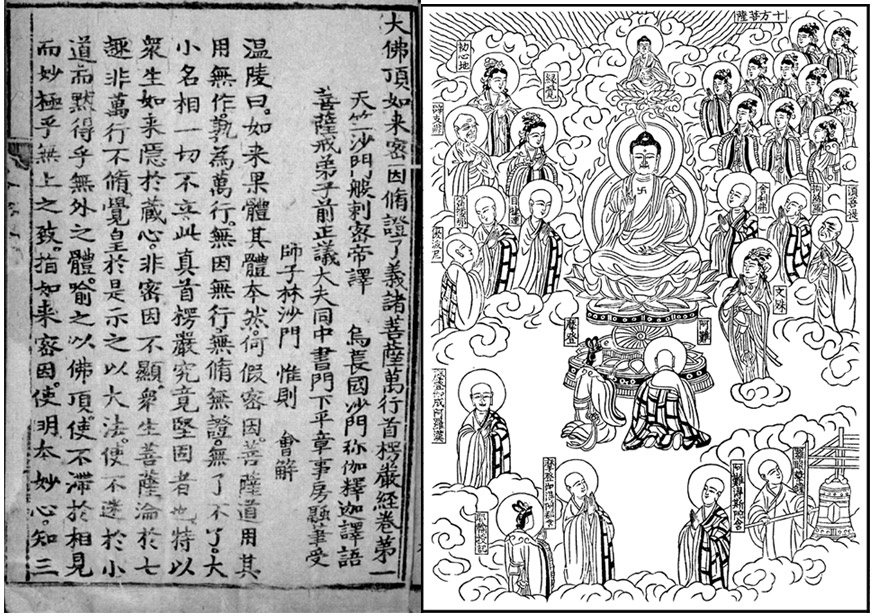 大佛頂如来密因脩證了義諸菩薩萬行首楞嚴經卷第一
天竺沙門般剌密帝譯 烏長國沙門弥伽釋迦譯語
菩薩戒弟子前正議大夫同中書門下平章事房融筆受
師子林沙門 惟則 會解
温陵曰如来果體其體本然何假密因菩薩道用其
用無作孰為萬行無因無行無脩無證無了不了大
小名相一切不立此真首楞嚴究竟堅固者也特以
衆生如来隠於蔵心非密因不顯衆生菩薩淪於七
趣非萬行不脩覺皇於是示之以大法使不迷於小
道而黙得乎無外之體喻之以佛頂使不滯於相見
而妙極乎無上之致指如来密因使明本妙心知三
十方菩薩
初心地
緣覺
舍利弗
須菩提
文殊
阿難
摩登